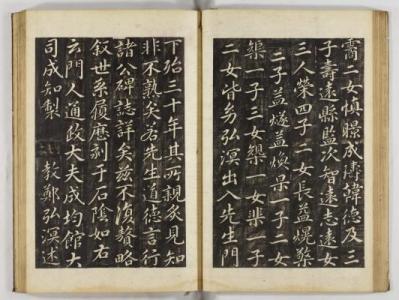 二女慎暻成濤韓德及三
子壽遠縣監次智遠志遠女
三人榮四子二女長益熀檠
二子益燧益煥杲一子二女
榘一子三女槼一女棐一子
二女皆幼弘溟出入先生門
下殆三十年其所親炙見知
非不熟矣若先生道德言行
諸公碑誌詳矣玆不須贅略
叙世系履歷刻于石陰如右
云門人通政大夫成均館大
司成知製 教鄭弘溟述